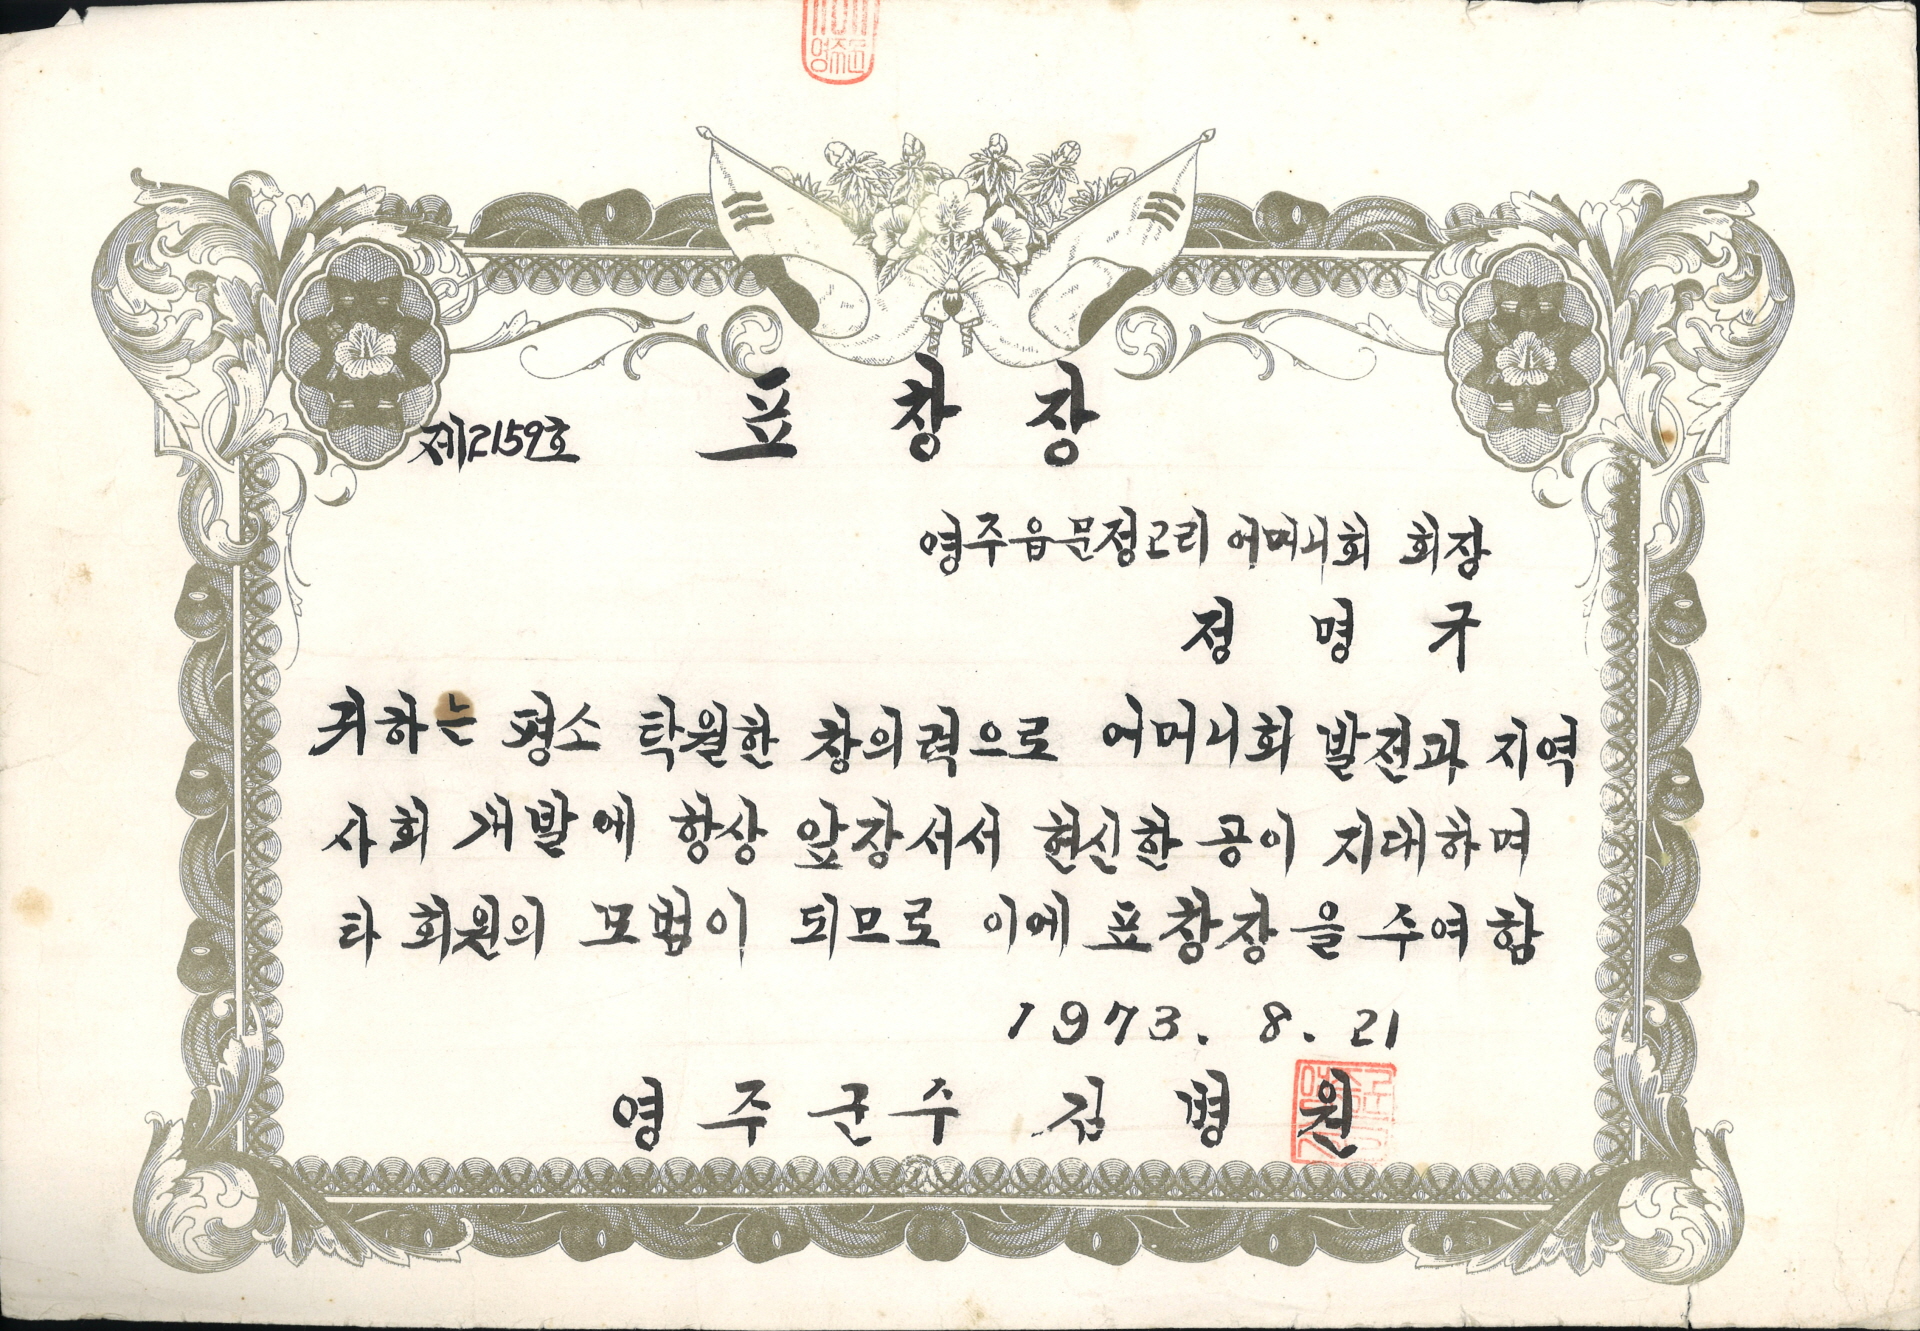 영주군
표창장
제2159호
영주읍문정2리 어머니회 회장
정명규
귀하는 평소 탁월한 창의력으로 어머니회 발전과 지역
사회 개발에 항상 앞장서서 헌신한 공이 지대하며
타 회원의 모범이 되므로 이에 표창장을 주여함
1973. 8. 21
영주군수 김병원